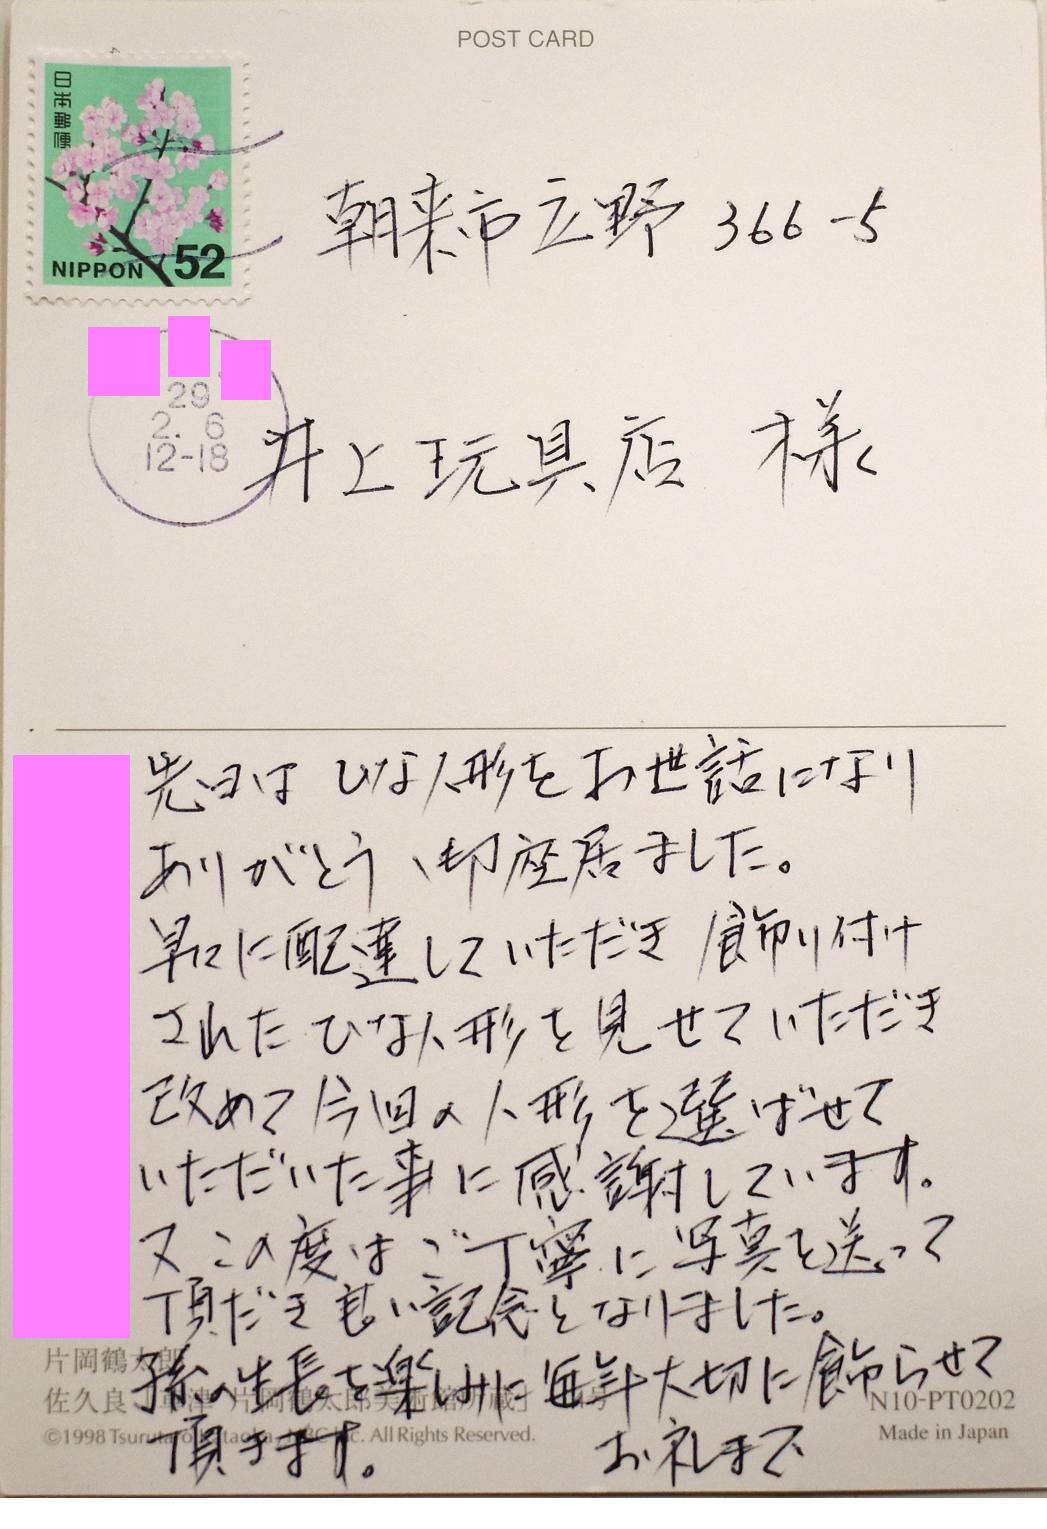 POST CARD
日本郵便
NIPPON 52
朝来市立野 366-5
29
2. 6
12-18
井上玩具店 様
先日は ひな人形を お世話になり
ありがとう御座居ました。
早々に配達していただき 飾り付け
された ひな人形を見せていただき
改めて今回の人形を選ばせて
いただいた事に感謝しています。
又この度はご丁寧に写真を送って
頂だき良い記念となりました。
孫の生長を楽しみに毎年大切に飾らせて
頂きます。 お礼まで
片岡鶴太郎
佐久良 草津 片岡鶴太郎美術館所蔵 号
N10-PT0202
©1998 Tsurutaro Kataoka, Inc. All Rights Reserved.
Made in Japan